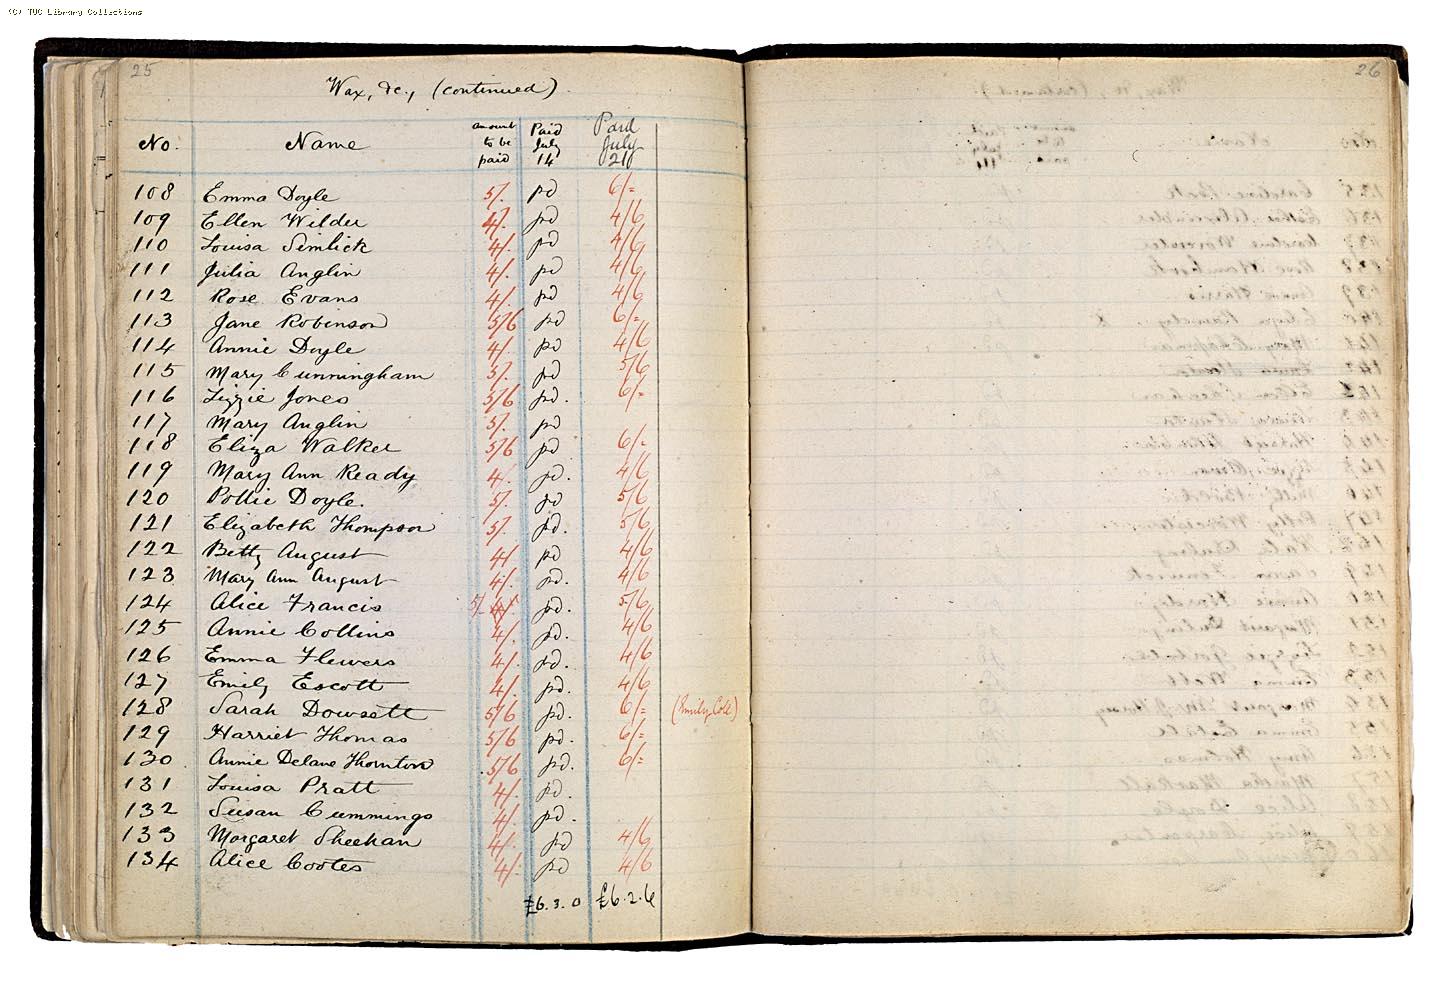 (C) TUC Library Collections
25
26
Wax, &c., (continued).
No. Name amount to be paid Paid July 14 Paid July 21
108 Emma Doyle 5/. pd 6/=
109 Ellen Wilder 4/. pd 4/6
110 Louisa Simlick 4/. pd 4/6
111 Julia Anglin 4/. pd 4/6
112 Rose Evans 4/. pd 4/6
113 Jane Robinson 5/6 pd 6/=
114 Annie Doyle 4/. pd 4/6
115 Mary Cunningham 5/. pd 5/6
116 Lizzie Jones 5/6 pd. 6/=
117 Mary Anglin 5/. pd
118 Eliza Walker 5/6 pd 6/=
119 Mary Ann Ready 4/. pd. 4/6
120 Pollie Doyle. 5/. pd 5/6
121 Elizabeth Thompson 5/. pd. 5/6
122 Betty August 4/ pd 4/6
123 Mary Ann August 4/. pd. 4/6
124 Alice Francis 5/. 4/. pd. 5/6
125 Annie Collins 4/. pd. 4/6
126 Emma Flewers 4/. pd. 4/6
127 Emily Escott 4/. pd. 4/6
128 Sarah Dowsett 5/6 pd. 6/= (Emily Cole)
129 Harriet Thomas 5/6 pd. 6/=
130 Annie Delane Thornton 5/6 pd. 6/=
131 Louisa Pratt 4/. pd.
132 Susan Cummings 4/. pd.
133 Margaret Sheehan 4/. pd 4/6
134 Alice Cootes 4/. pd 4/6
£6.3.0 £6.2.6